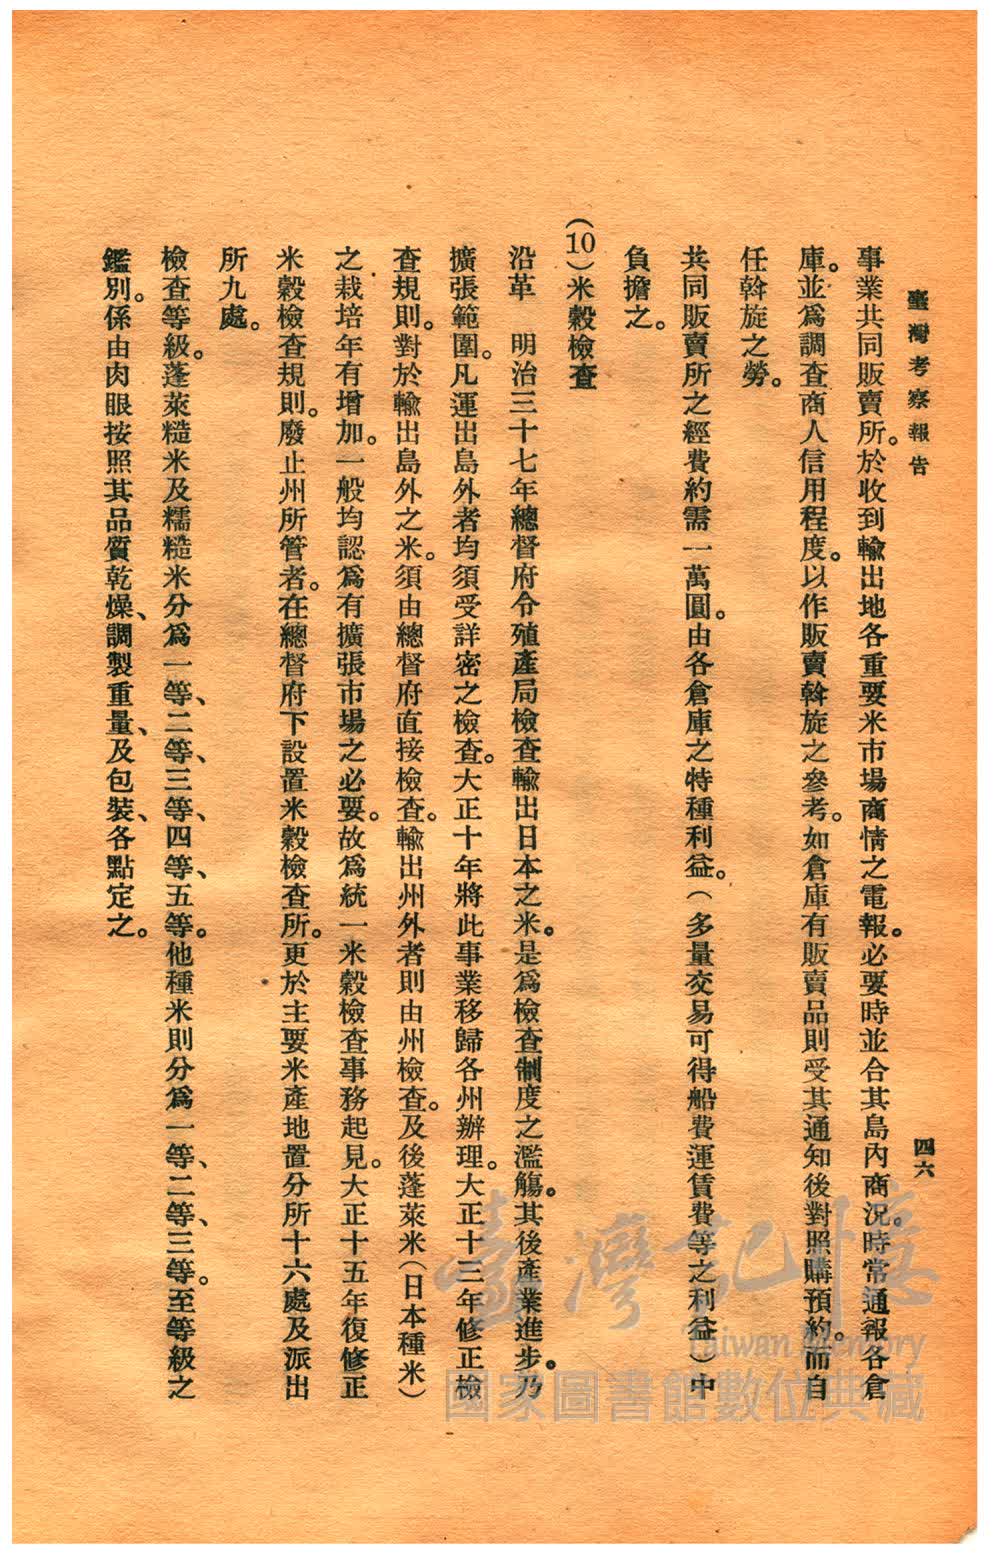 臺灣考察報告
四六
事業共同販賣所。於收到輸出地各重要米市場商情之電報。必要時並合其島內商況。時常通報各倉
庫。並爲調查商人信用程度。以作販賣斡旋之參考。如倉庫有販賣品則受其通知後對照購預約。而自
任斡旋之勞。
共同販賣所之經費約需一萬圓。由各倉庫之特種利益。(多量交易可得船費運賃費等之利益)中
負擔之。
(10)米穀檢查
沿革　明治三十七年總督府令殖產局檢查輸出日本之米。是爲檢查制度之濫觴。其後產業進步。乃
擴張範圍。凡運出島外者均須受詳密之檢查。大正十年將此事業移歸各州辦理。大正十三年修正檢
查規則。對於輸出島外之米。須由總督府直接檢查。輸出州外者則由州檢查。及後蓬萊米(日本種米)
之栽培年有增加。一般均認爲有擴張市場之必要。故爲統一米穀檢查事務起見。大正十五年復修正
米穀檢查規則。廢止州所管者。在總督府下設置米穀檢查所。更於主要米產地置分所十六處及派出
所九處。
檢查等級。蓬萊糙米及糯糙米分爲一等、二等、三等、四等、五等。他種米則分爲一等、二等、三等。至等級之
鑑別。係由肉眼按照其品質乾燥、調製重量、及包裝、各點定之。
臺灣記憶
Taiwan Memory
國家圖書館數位典藏